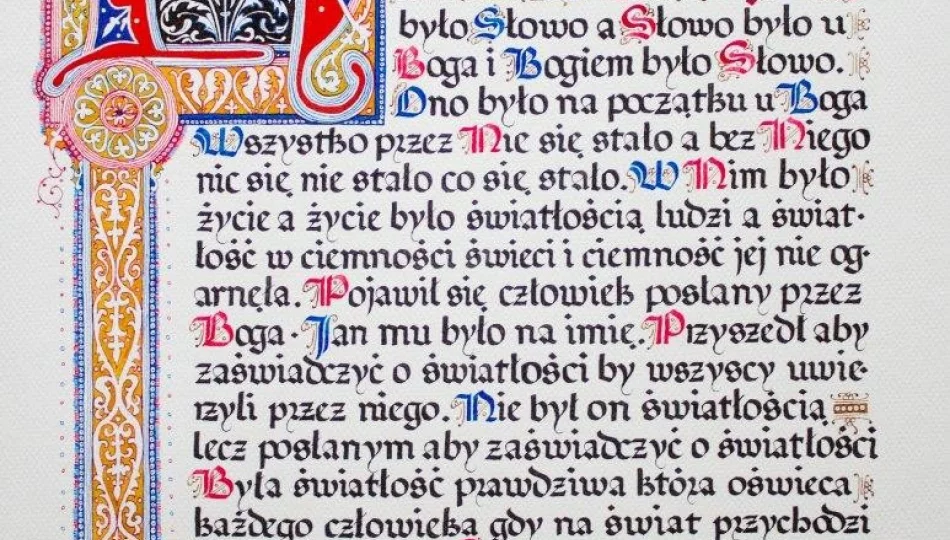 było Słowo a Słowo było u
Boga i Bogiem było Słowo.
Ono było na początku u Boga
Wszystko przez Nic się stało a bez Niego
nic się nie stało co się stało. W Nim było
życie a życie było światłością ludzi a świat·
łość w ciemności świeci i ciemność jej nie og·
arnęła. Pojawił się człowiek posłany przez
Boga · Jan mu było na imię. Przyszedł aby
zaświadczyć o światłości by wszyscy uwie·
rzyli przez niego. Nie był on światłością
lecz posłanym aby zaświadczyć o światłości
Była światłość prawdziwa która oświeca
każdego człowieka gdy na świat przychodzi